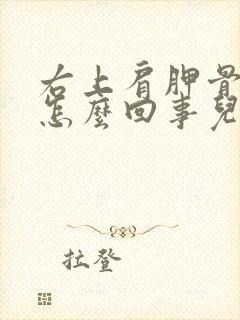 右上肩胛骨
怎麼回事兒
拉登